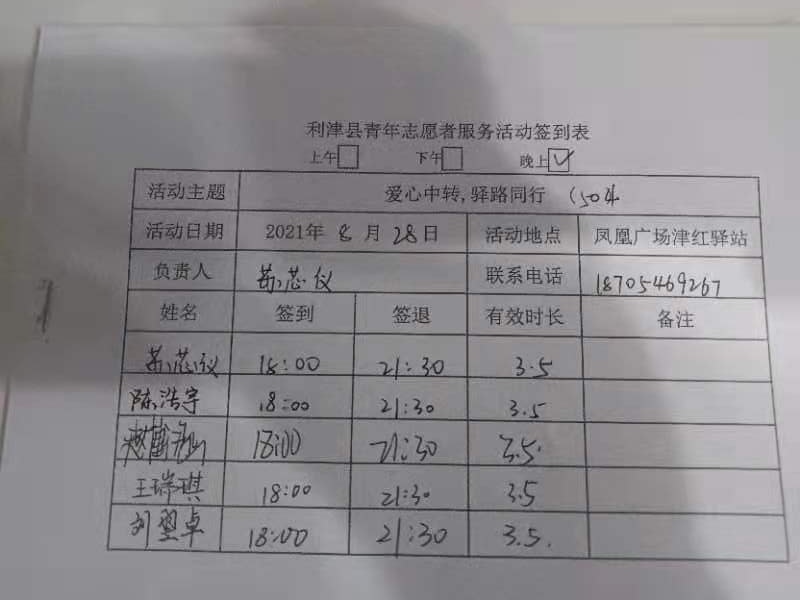 利津县青年志愿者服务活动签到表
上午 下午 晚上 ✓
活动主题 爱心中转,驿路同行 (50
活动日期 2021年 8 月 28 日 活动地点 凤凰广场津红驿站
负责人 芯仪 联系电话 18705469267
姓名 签到 签退 有效时长 备注
芯仪 18:00 21:30 3.5
陈浩宇 18:00 21:30 3.5
18:00 21:30 3.5.
王瑞琪 18:00 21:30 3.5
刘翌卓 18:00 21:30 3.5.